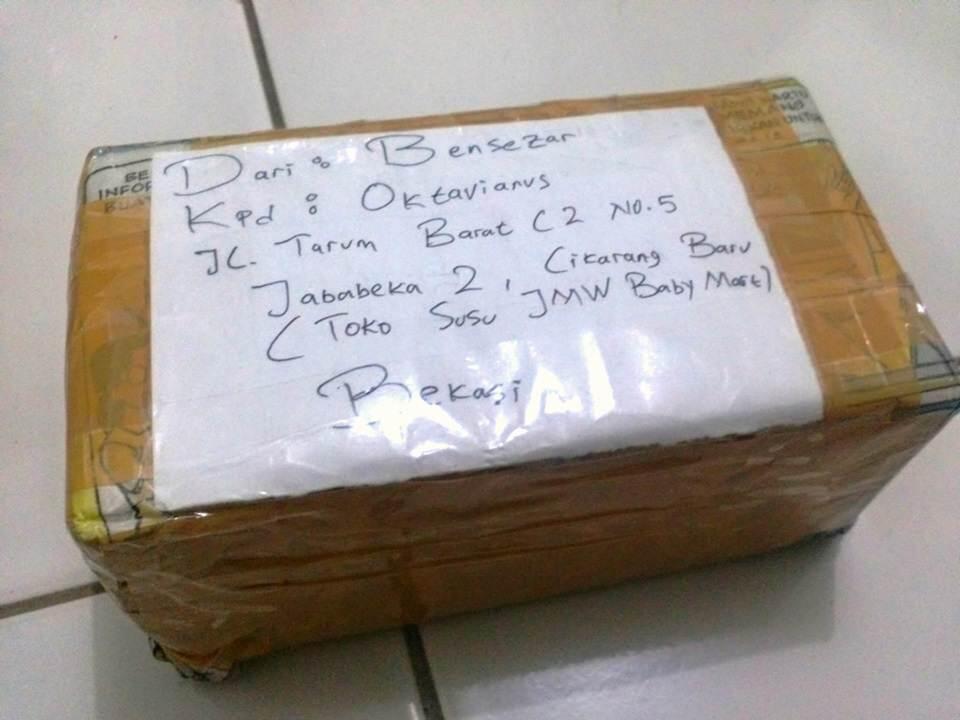 Dari : Bensezar
Kpd : Oktavianus
JL. Tarum Barat C2 No.5
Jababeka 2, Cikarang Baru
(Toko Susu JMW Baby Mart)
Bekasi
BE
INFOR
BUAT